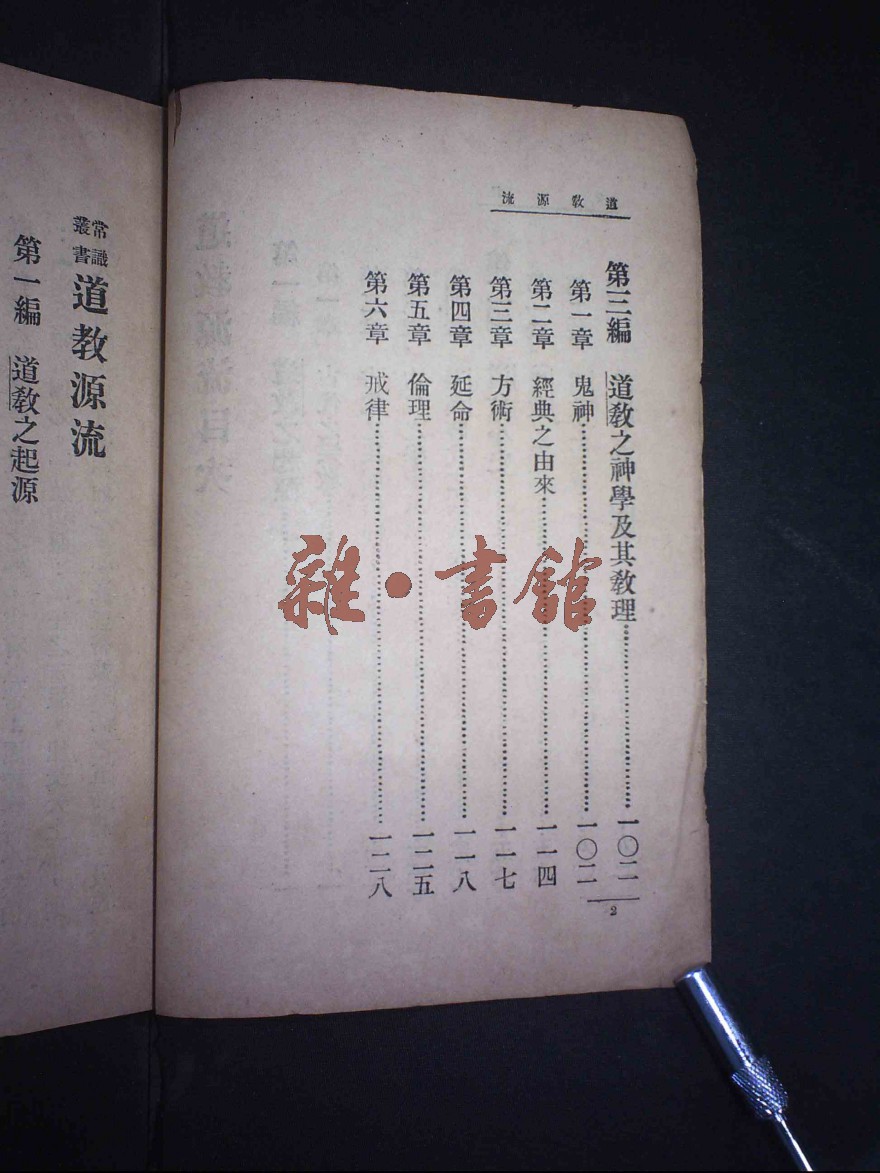 道教源流
第三編　道教之神學及其教理……一〇二
第一章　鬼神……一〇二
第二章　經典之由來……一一四
第三章　方術……一一七
第四章　延命……一一八
第五章　倫理……一二五
第六章　戒律……一二八
2
常識叢書　道教源流
第一編　道教之起源
雜·書館